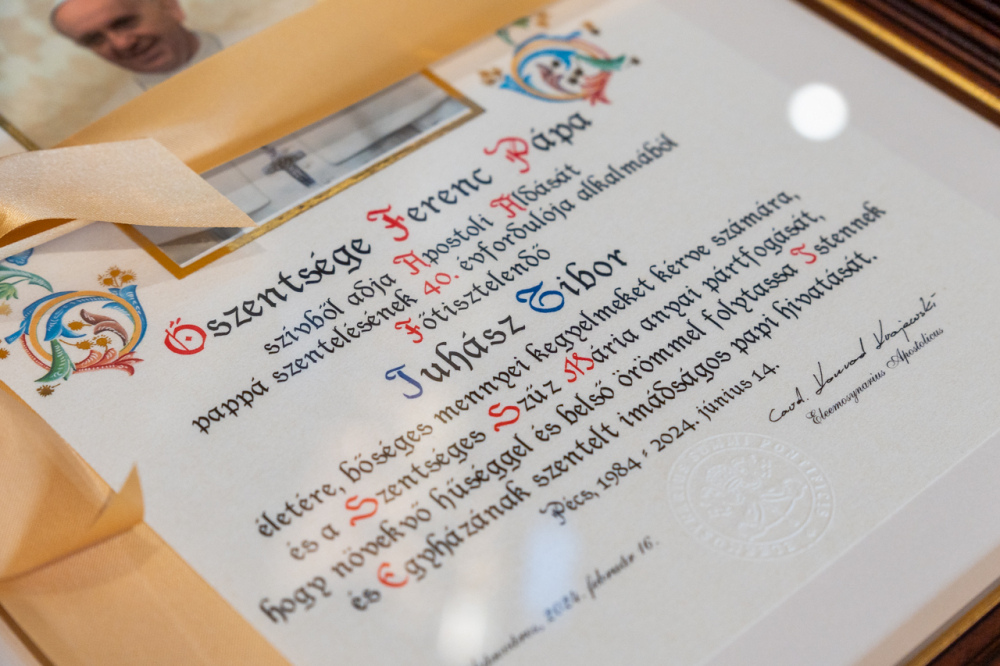 Őszentsége Ferenc Pápa
szívből adja Apostoli Áldását
pappá szentelésének 40. évfordulója alkalmából
Főtisztelendő
Juhász Tibor
életére, bőséges mennyei kegyelmeket kérve számára,
és a Szentséges Szűz Mária anyai pártfogását,
hogy növekvő hűséggel és belső örömmel folytassa Istennek
és Egyházának szentelt imádságos papi hivatását.
Pécs, 1984 : 2024. június 14.
Card. Konrad Krajewski
Eleemosynarius Apostolicus
2024. február 16.